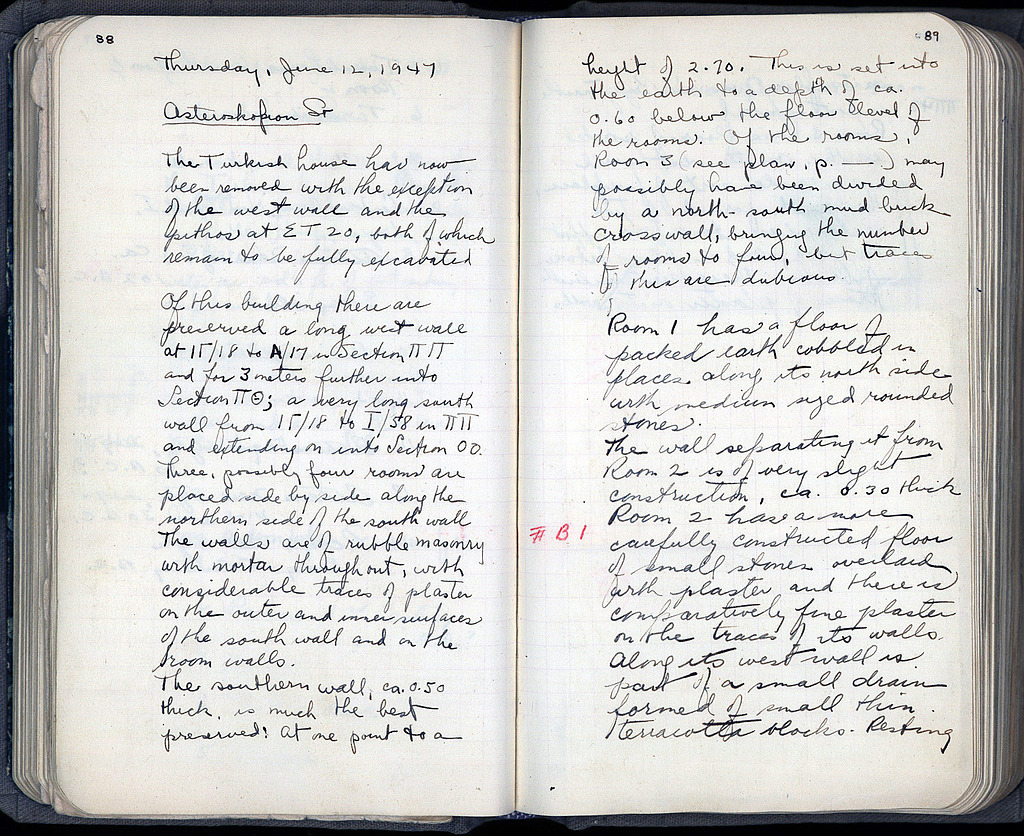 88
Thursday, June 12, 1947
Asteroskopion St
The Turkish house has now
been removed with the exception
of the west wall and the
pithos at ΣΤ 20, both of which
remain to be fully excavated
Of this building there are
preserved a long west wall
at 15/18 to Λ/17 in Section ΠΠ
and for 3 meters further into
Section ΠΘ; a very long south
wall from 15/18 to I/38 in ΠΠ
and extending on into Section ΟΟ.
Three, possibly four rooms are
placed side by side along the
northern side of the south wall
The walls are of rubble masonry
with mortar throughout, with
considerable traces of plaster
on the outer and inner surfaces
of the south wall and on the
room walls.
The southern wall, ca. 0.50
thick, is much the best
preserved: at one point to a
89
height of 2.70. This is set into
the earth to a depth of ca.
0.60 below the floor level of
the rooms. Of the rooms,
Room 3 (see plan, p. —) may
possibly have been divided
by a north-south mud brick
crosswall, bringing the number
of rooms to four, but traces
of this are dubious
Room 1 has a floor of
packed earth cobbled in
places along its north side
with medium sized rounded
stones.
The wall separating it from
Room 2 is of very slight
construction, ca. 0.30 thick
# B 1
Room 2 has a more
carefully constructed floor
of small stones overlaid
with plaster and there is
comparatively fine plaster
on the traces of its walls.
Along its west wall is
part of a small drain
formed of small thin
terracotta blocks. Resting